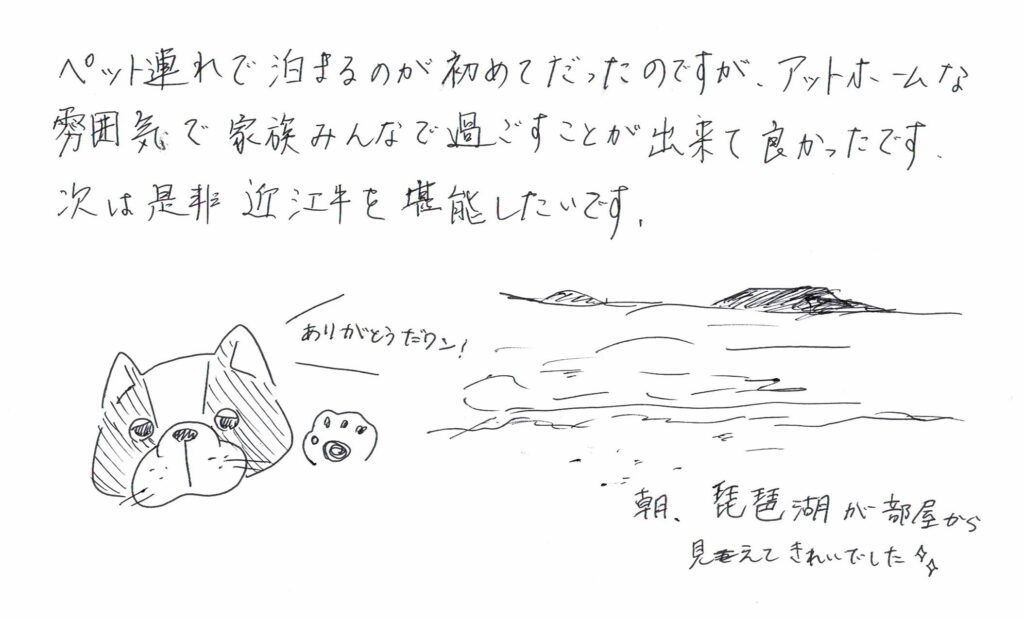 ペット連れで泊まるのが初めてだったのですが、アットホームな
雰囲気で家族みんなで過ごすことが出来て良かったです。
次は是非近江牛を堪能したいです。
ありがとうだワン!
朝、琵琶湖が部屋から
見えてきれいでした